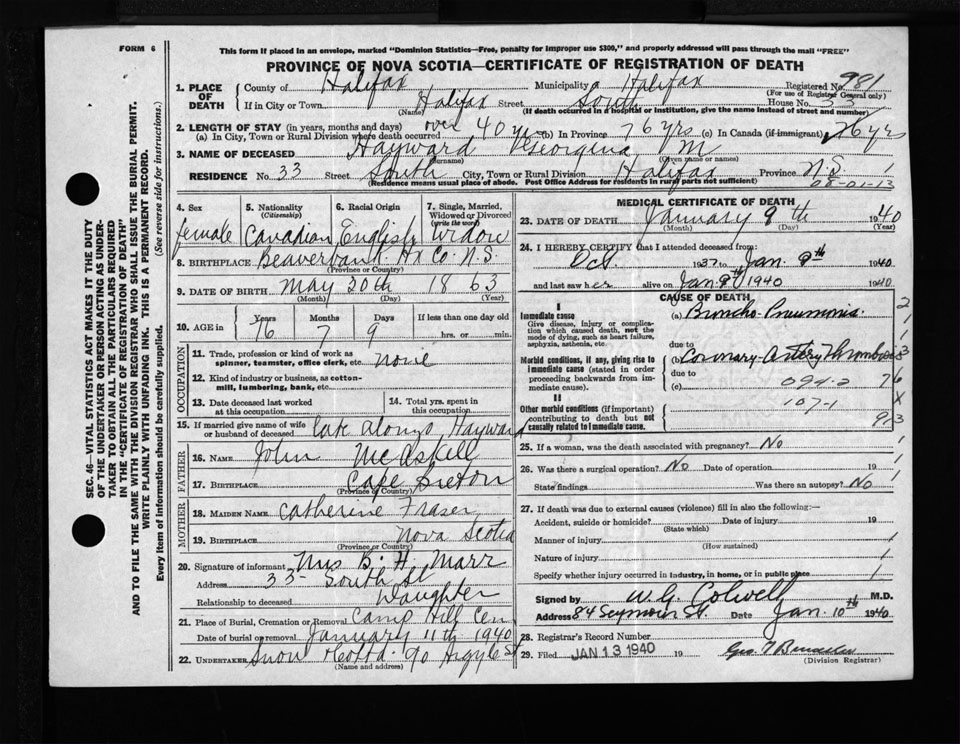 FORM 6
This form if placed in an envelope, marked "Dominion Statistics—Free, penalty for improper use $300," and properly addressed will pass through the mail "FREE"
PROVINCE OF NOVA SCOTIA—CERTIFICATE OF REGISTRATION OF DEATH
SEC. 46—VITAL STATISTICS ACT MAKES IT THE DUTY
OF THE UNDERTAKER OR PERSON ACTING AS UNDER-
TAKER TO OBTAIN ALL THE PARTICULARS REQUIRED
IN THE "CERTIFICATE OF REGISTRATION OF DEATH"
AND TO FILE THE SAME WITH THE DIVISION REGISTRAR WHO SHALL ISSUE THE BURIAL PERMIT.
WRITE PLAINLY WITH UNFADING INK. THIS IS A PERMANENT RECORD.
Every item of information should be carefully supplied. (See reverse side for instructions.)
1. PLACE OF DEATH County of Halifax Municipality Halifax Registered No. 981
(For use of Registrar General only)
If in City or Town Halifax Street South House No. 33
(Name) (If death occurred in a hospital or institution, give the name instead of street and number)
2. LENGTH OF STAY (in years, months and days)
(a) In City, Town or Rural Division where death occurred over 40 yrs (b) In Province 76 yrs (c) In Canada (if immigrant) 76 yr
3. NAME OF DECEASED Hayward Georgina M
(Surname) (Given name or names)
RESIDENCE No. 33 Street South City, Town or Rural Division Halifax Province N.S. 1
(Residence means usual place of abode. Post Office Address for residents in rural parts not sufficient) 08-01-13
4. Sex female
5. Nationality (Citizenship) Canadian
6. Racial Origin English
7. Single, Married, Widowed or Divorced (write the word) Widow
8. BIRTHPLACE Beaverbank Hx Co. N.S.
(Province or Country)
9. DATE OF BIRTH May 30th 1863
(Month) (Day) (Year)
10. AGE in Years Months Days If less than one day old
76 7 9 hrs. or min.
OCCUPATION
11. Trade, profession or kind of work as spinner, teamster, office clerk, etc. none
12. Kind of industry or business, as cotton-mill, lumbering, bank, etc.
13. Date deceased last worked at this occupation
14. Total yrs. spent in this occupation
15. If married give name of wife or husband of deceased late Alonzo Hayward
FATHER
16. NAME John McAskill
17. BIRTHPLACE Cape Breton
(Province or Country)
MOTHER
18. MAIDEN NAME Catherine Fraser
19. BIRTHPLACE Nova Scotia
(Province or Country)
20. Signature of informant Mrs B. H. Marr
Address 33- South St
Relationship to deceased Daughter
21. Place of Burial, Cremation or Removal Camp Hill Cem
Date of burial or removal January 11th 1940
22. UNDERTAKER Snow 90 Argyle St
(Name and address)
MEDICAL CERTIFICATE OF DEATH
23. DATE OF DEATH January 9th 1940
(Month) (Day) (Year)
24. I HEREBY CERTIFY that I attended deceased from:
Oct. 1937 to Jan. 9th 1940
and last saw her alive on Jan. 9th 1940 1940
CAUSE OF DEATH
I
Immediate cause
Give disease, injury or complication which caused death, not the mode of dying, such as heart failure, asphyxia, asthenia, etc.
(a) Broncho-Pneumonia 2
Morbid conditions, if any, giving rise to immediate cause (stated in order proceeding backwards from immediate cause).
due to
(b) Coronary-Artery Thrombosis 3
due to
(c) 094-2 76
II
107-1 X
Other morbid conditions (if important) contributing to death but not causally related to immediate cause.
25. If a woman, was the death associated with pregnancy? No 1
26. Was there a surgical operation? No Date of operation 19 1
State findings Was there an autopsy? No 1
27. If death was due to external causes (violence) fill in also the following:—
Accident, suicide or homicide? Date of injury 19
(State which)
Manner of injury 1
(How sustained)
Nature of injury 1
Specify whether injury occurred in industry, in home, or in public place 1
Signed by W. G. Colwell M.D.
Address 84 Seymour St. Date Jan. 10th 1940
28. Registrar's Record Number
29. Filed JAN 13 1940 19 Geo.
(Division Registrar)